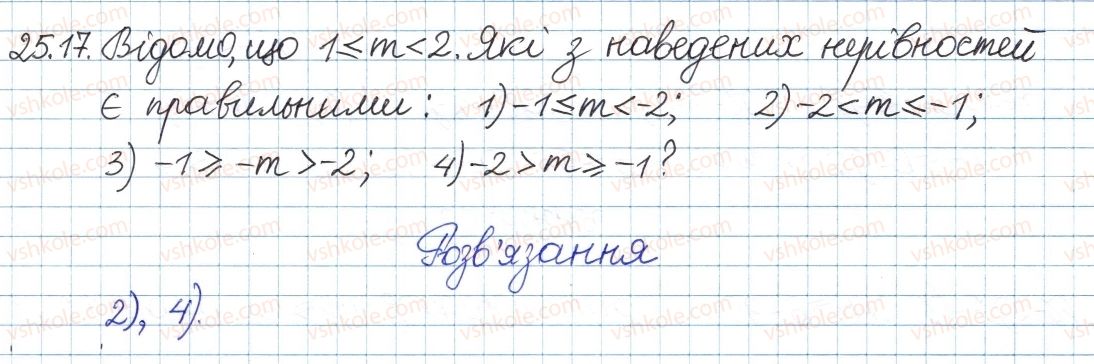 25.17. Відомо, що 1 ≤ m < 2. Які з наведених нерівностей
є правильними: 1) -1 ≤ m < -2; 2) -2 < m ≤ -1;
3) -1 ≥ -m > -2; 4) -2 > m ≥ -1?
Розв'язання
2), 4).